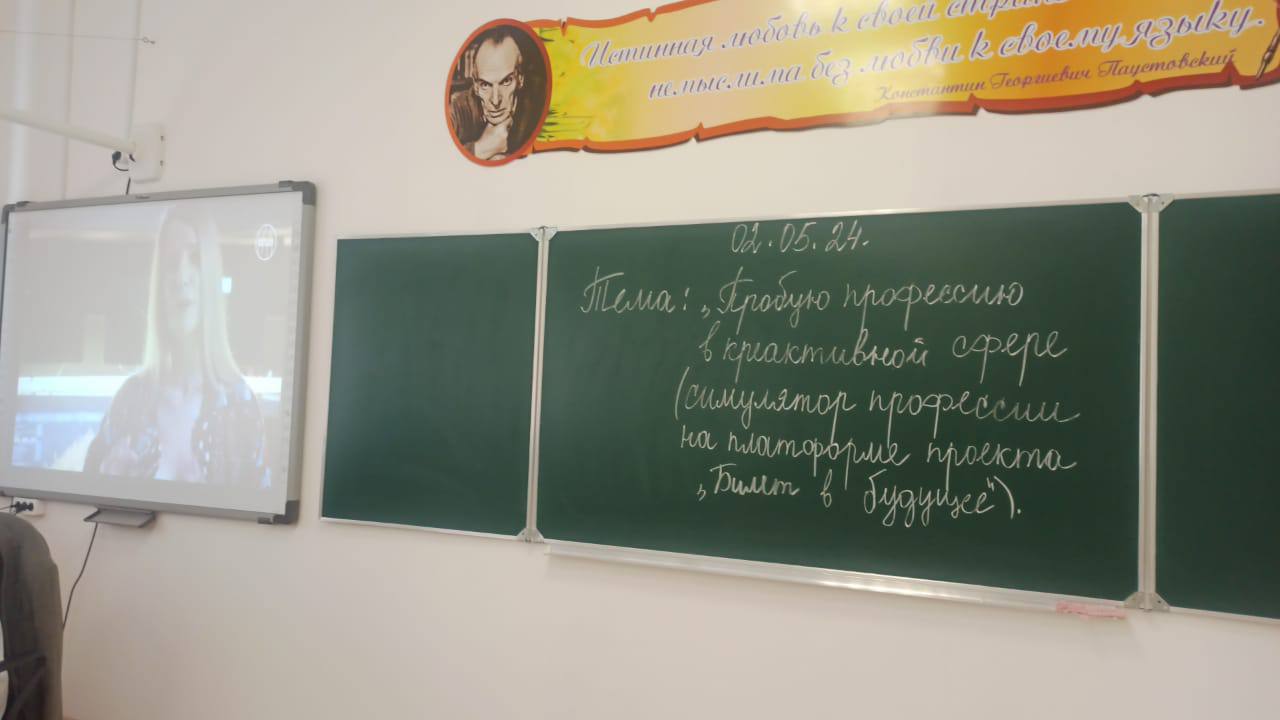 Истинная любовь к своей стране
немыслима без любви к своему языку.
Константин Георгиевич Паустовский
02.05.24.
Тема: „Пробую профессию
в креактивной сфере
(симулятор профессии
на платоформе проекта
„Билет в будущее").